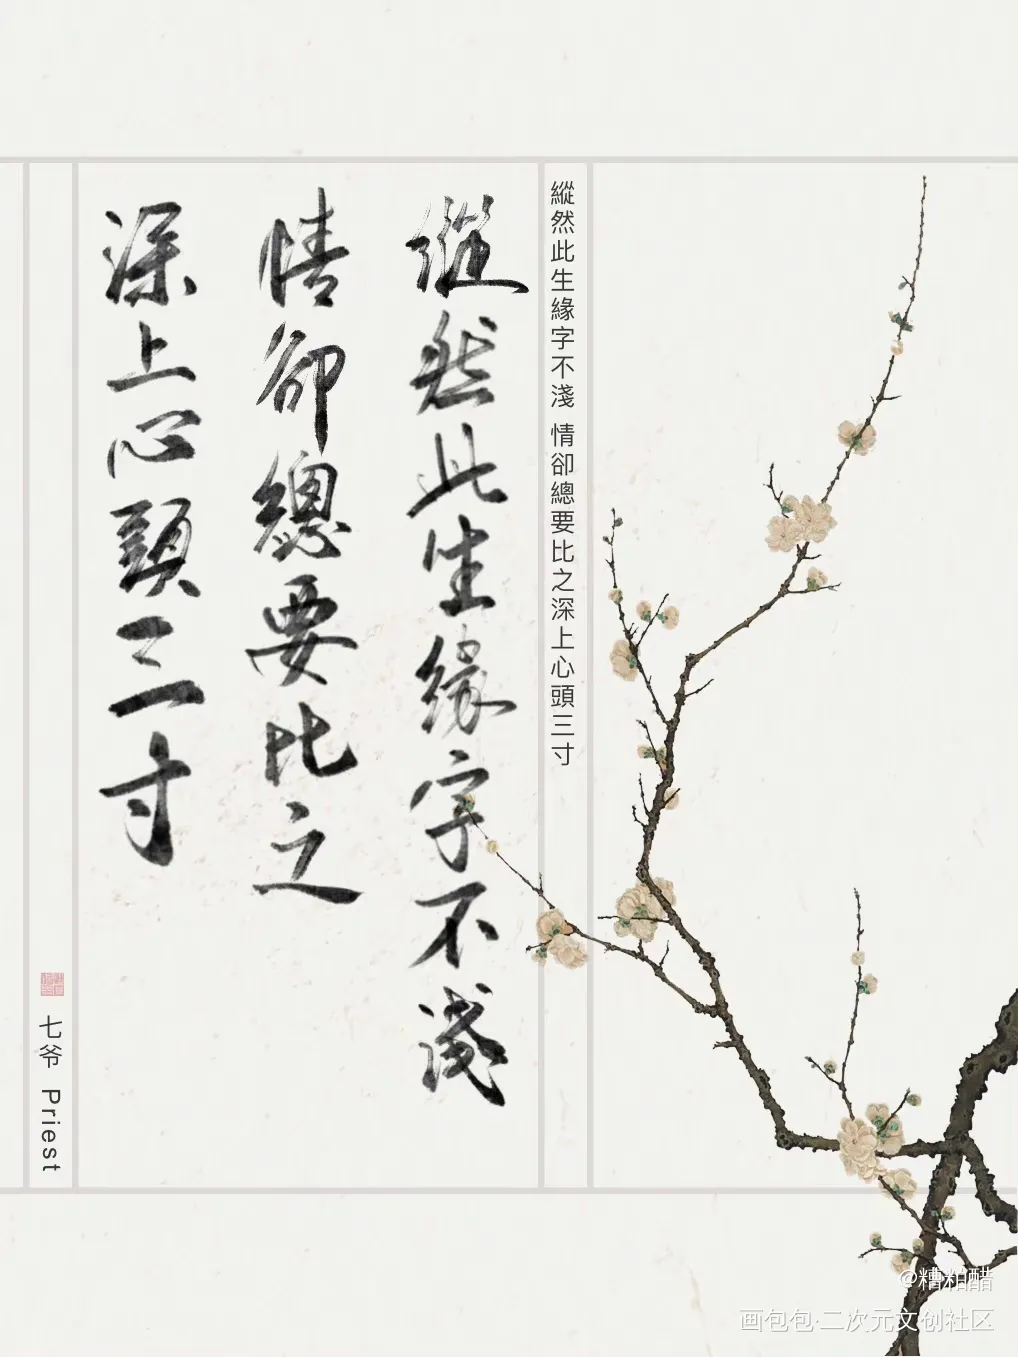 縱然此生緣字不淺 情卻總要比之深上心頭三寸
縱然此生緣字不淺
情卻總要比之
深上心頭三寸
七爷 Priest
@糟粕醋
画包包·二次元文创社区